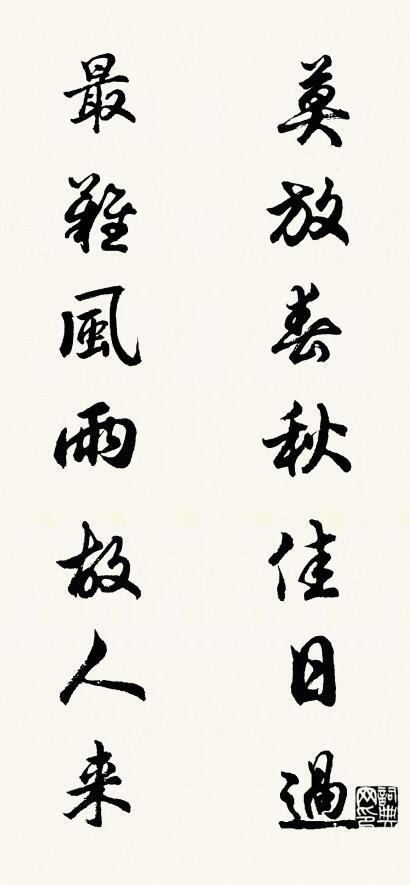 莫放春秋佳日過
最難風雨故人来